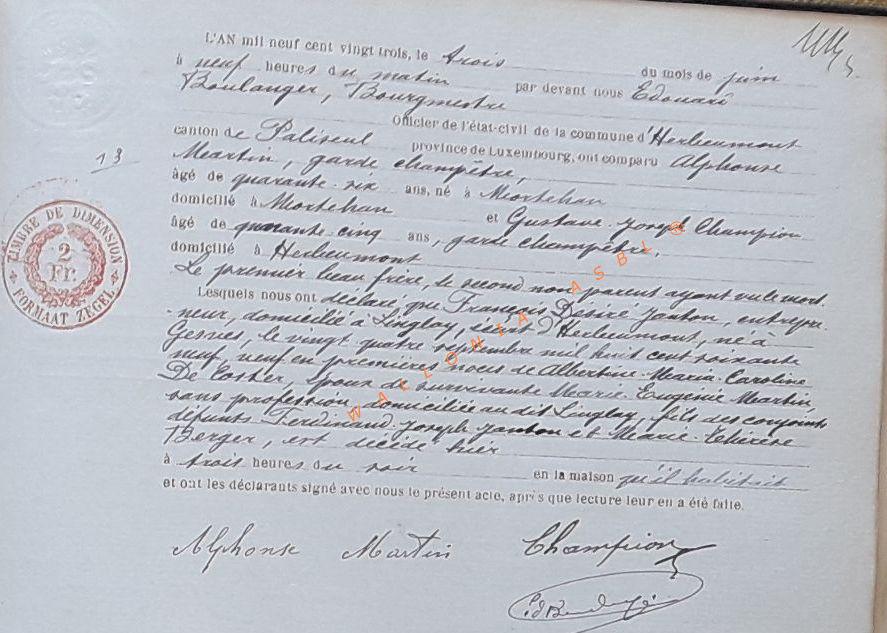 L'AN mil neuf cent vingt trois, le trois du mois de juin
à neuf heures du matin par devant nous Edouard
Boulanger, Bourgmestre
Officier de l'état-civil de la commune d'Herbeumont
canton de Paliseul province de Luxembourg, ont comparu Alphonse
13
Martin, garde champêtre,
âgé de quarante-six ans, né à Mortehan
domicilié à Mortehan et Gustave Joseph Champion
âgé de quarante cinq ans, garde champêtre,
domicilié à Herbeumont
Le premier beau frère, le second non parent ayant vu le mort.
Lesquels nous ont déclaré que François Désiré Jauton, entrepre-
-neur, domicilié à Linglay, d'Herbeumont, né à
Gesves, le vingt quatre septembre mil huit cent soixante
neuf, veuf en premières noces de Albertine-Maria-Caroline
De Coster, époux de survivante Marie-Eugénie Martin,
sans profession, domiciliée au dit Linglay, fils des conjoints
défunts Ferdinand-Joseph Jauton et Marie-Thérèse
Berger, est décédé hier
à trois heures du soir en la maison qu'il habitait
et ont les déclarants signé avec nous le présent acte, après que lecture leur en a été faite.
Alphonse Martin Champion
TIMBRE DE DIMENSION
2
Fr.
FORMAAT ZEGEL
WALLONIA ASBL ©